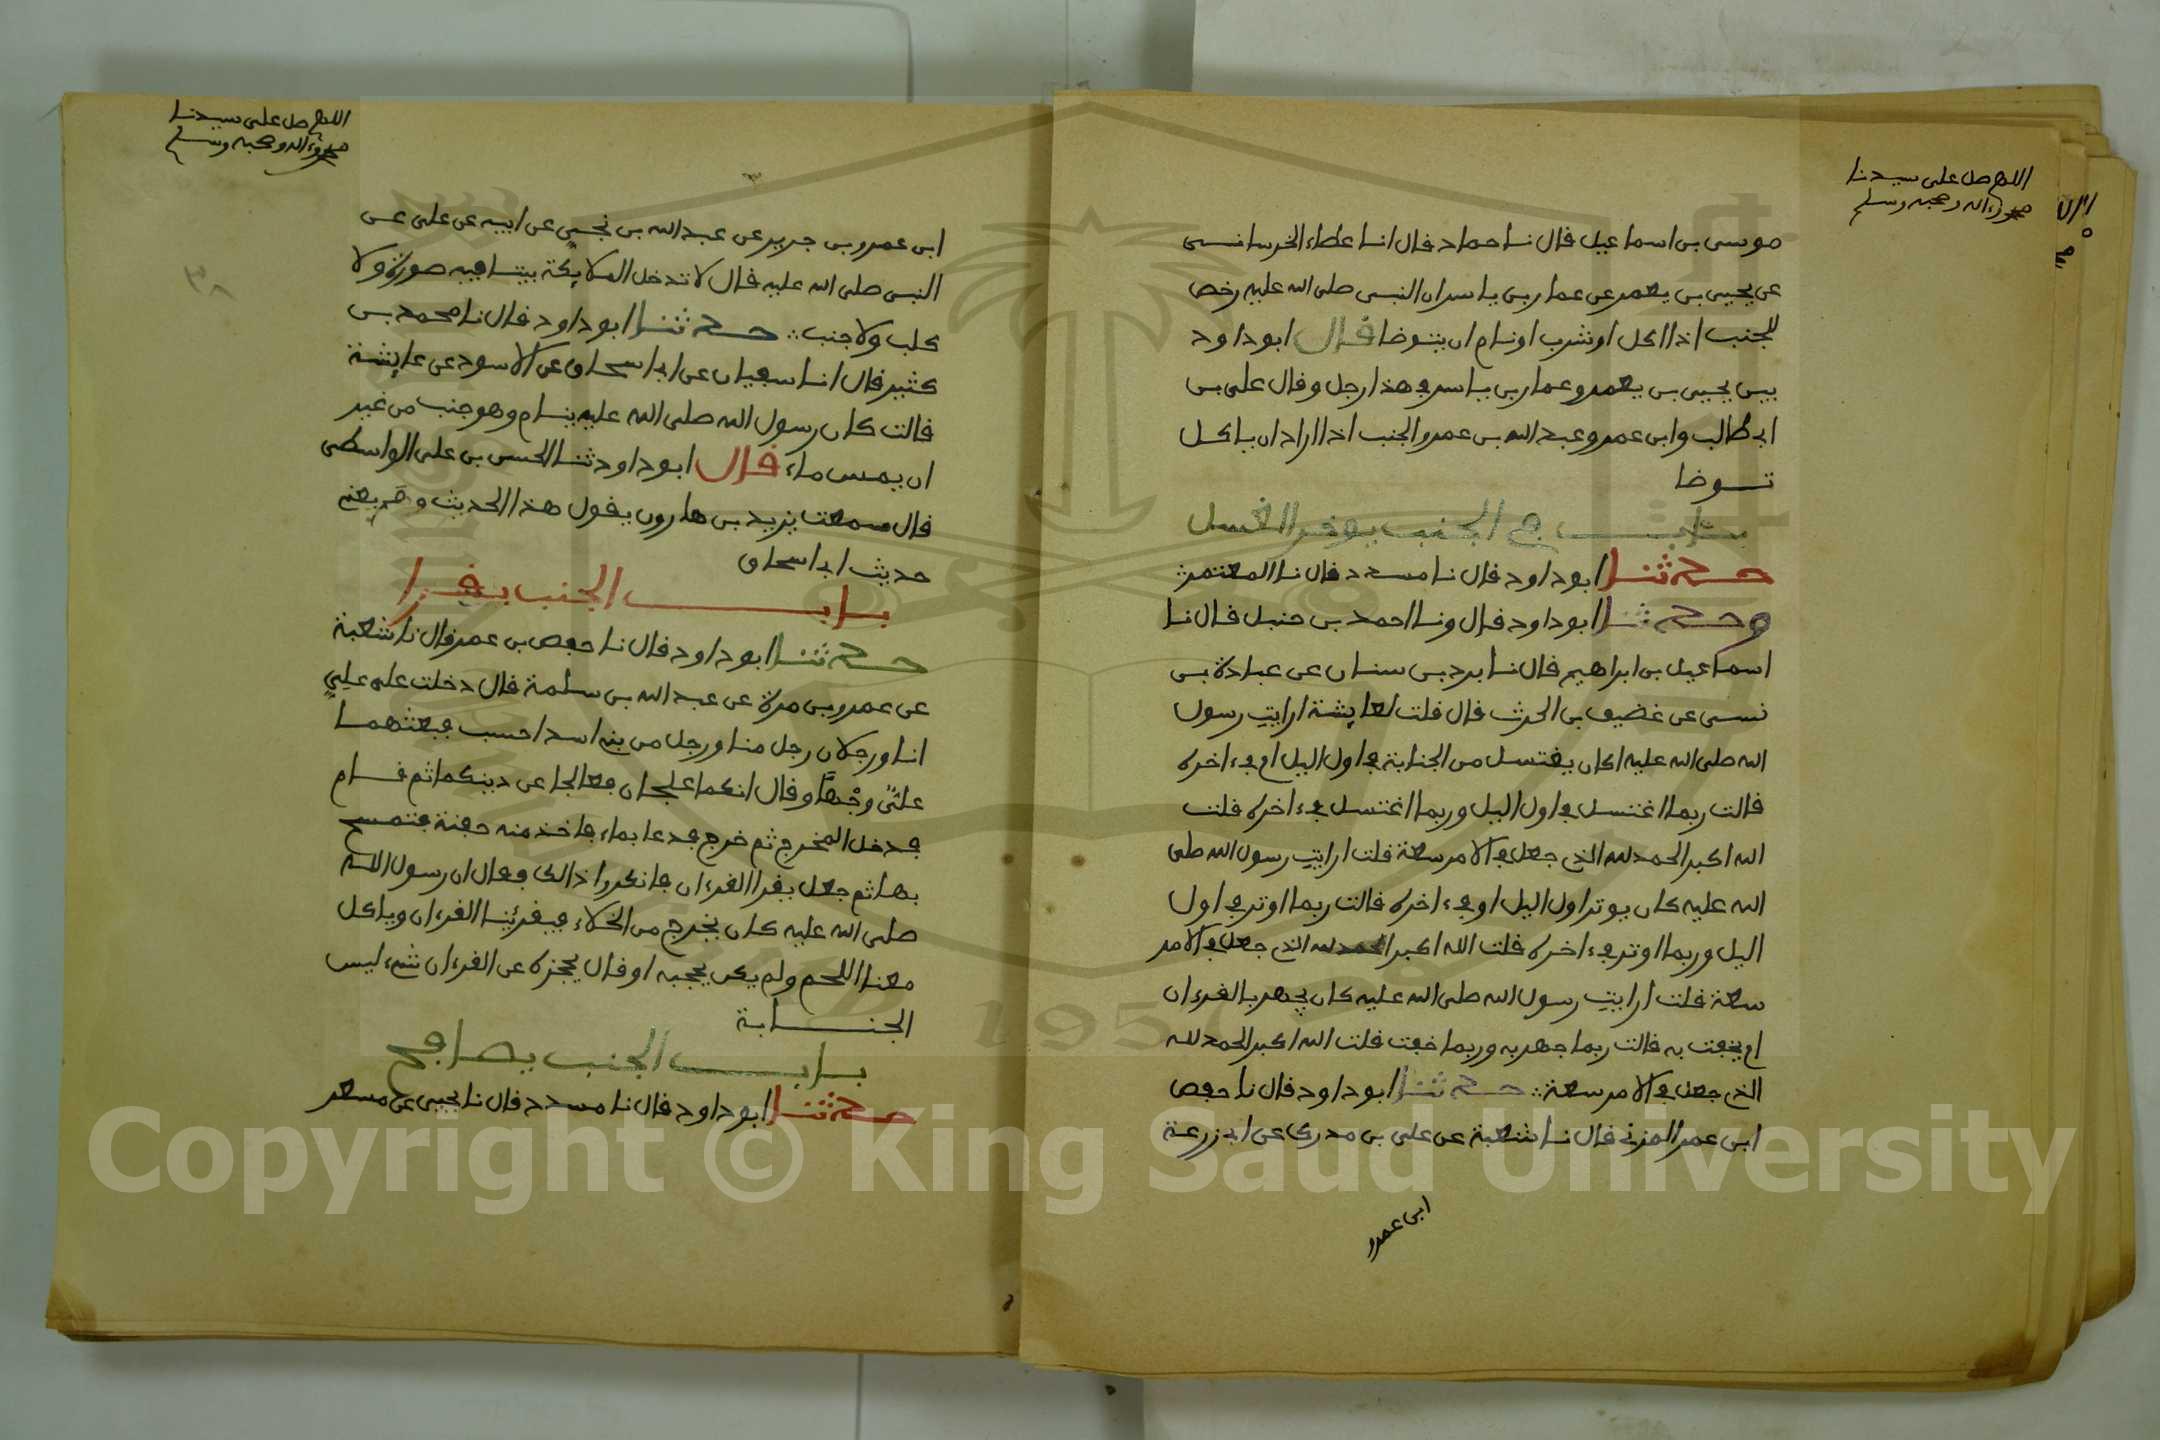 اللهم صل على سيدنا
محمد وءاله وصحبه وسلم
موسى بن اسماعيل قال نا حماد قال انا عطاء الخرسانى
عن يحيى بن يعمر عن عمار بن ياسر ان النبى صلى الله عليه رخص
للجنب اذا اكل او شرب او نام ان يتوضا قال ابو داود
بين يحيى بن يعمر وعمار بن ياسر في هذا رجل وقال على بن
ابي طالب وابن عمر وعبد الله بن عمرو الجنب اذا اراد ان ياكل
توضا
باب في الجنب يوخر الغسل
حدثنا ابو داود قال نا مسدد قال نا المعتمر
وحدثنا ابو داود قال ونا احمد بن حنبل قال نا
اسماعيل بن ابراهيم قال نا برد بن سنان عن عبادة بن
نسى عن غضيف بن الحرث قال قلت لعايشة ارايت رسول
الله صلى الله عليه اكان يغتسل من الجنابة في اول اليل ام في ءاخره
قالت ربما اغتسل في اول اليل وربما اغتسل في ءاخره قلت
الله اكبر الحمد لله الذي جعل في الامر سعة قلت ارايت رسول الله صلى
الله عليه كان يوتر اول اليل او في ءاخره قالت ربما اوتر في اول
اليل وربما اوتر في ءاخره قلت الله اكبر الحمد لله الذي جعل في الامر
سعة قلت ارايت رسول الله صلى الله عليه كان يجهر بالقرءان
ام يخفت به قالت ربما جهر به وربما خفت قلت الله اكبر الحمد لله
الذي جعل في الامر سعة حدثنا ابو داود قال نا حفص
ابن عمر المزني قال نا شعبة عن على بن مدرك عن ابي زرعة
ابن عمرو
اللهم صل على سيدنا
محمد وءاله وصحبه وسلم
ابن عمرو بن جرير عن عبد الله بن نجي عن ابيه عن على عن
النبى صلى الله عليه قال لا تدخل الملايكة بيتا فيه صورة ولا
كلب ولا جنب حدثنا ابو داود قال نا محمد بن
كثير قال انا سفيان عن ابي اسحاق عن الاسود عن عايشة
قالت كان رسول الله صلى الله عليه ينام وهو جنب من غير
ان يمس ماء قال ابو داود ثنا الحسن بن على الواسطى
قال سمعت يزيد بن هارون يقول هذا الحديث وهم يعني
حديث ابي اسحاق
باب الجنب يقرا
حدثنا ابو داود قال نا حفص بن عمر قال نا شعبة
عن عمرو بن مرة عن عبد الله بن سلمة قال دخلت على علي
انا ورجلان رجل منا ورجل من بني اسد احسب فبعثهما
علي وجها وقال انكما علجان فعالجا عن دينكما ثم قام
فدخل المخرج ثم خرج فدعا بماء فاخذ منه حفنة فتمسح
بها ثم جعل يقرا القرءان فانكروا ذالك فقال ان رسول الله
صلى الله عليه كان يخرج من الخلاء فيقرئنا القرءان وياكل
معنا اللحم ولم يكن يحجبه او قال يحجزه عن القرءان شيء ليس
الجنابة
باب الجنب يصافح
حدثنا ابو داود قال نا مسدد قال نا يحيى عن مسعر
Copyright © King Saud University
1957